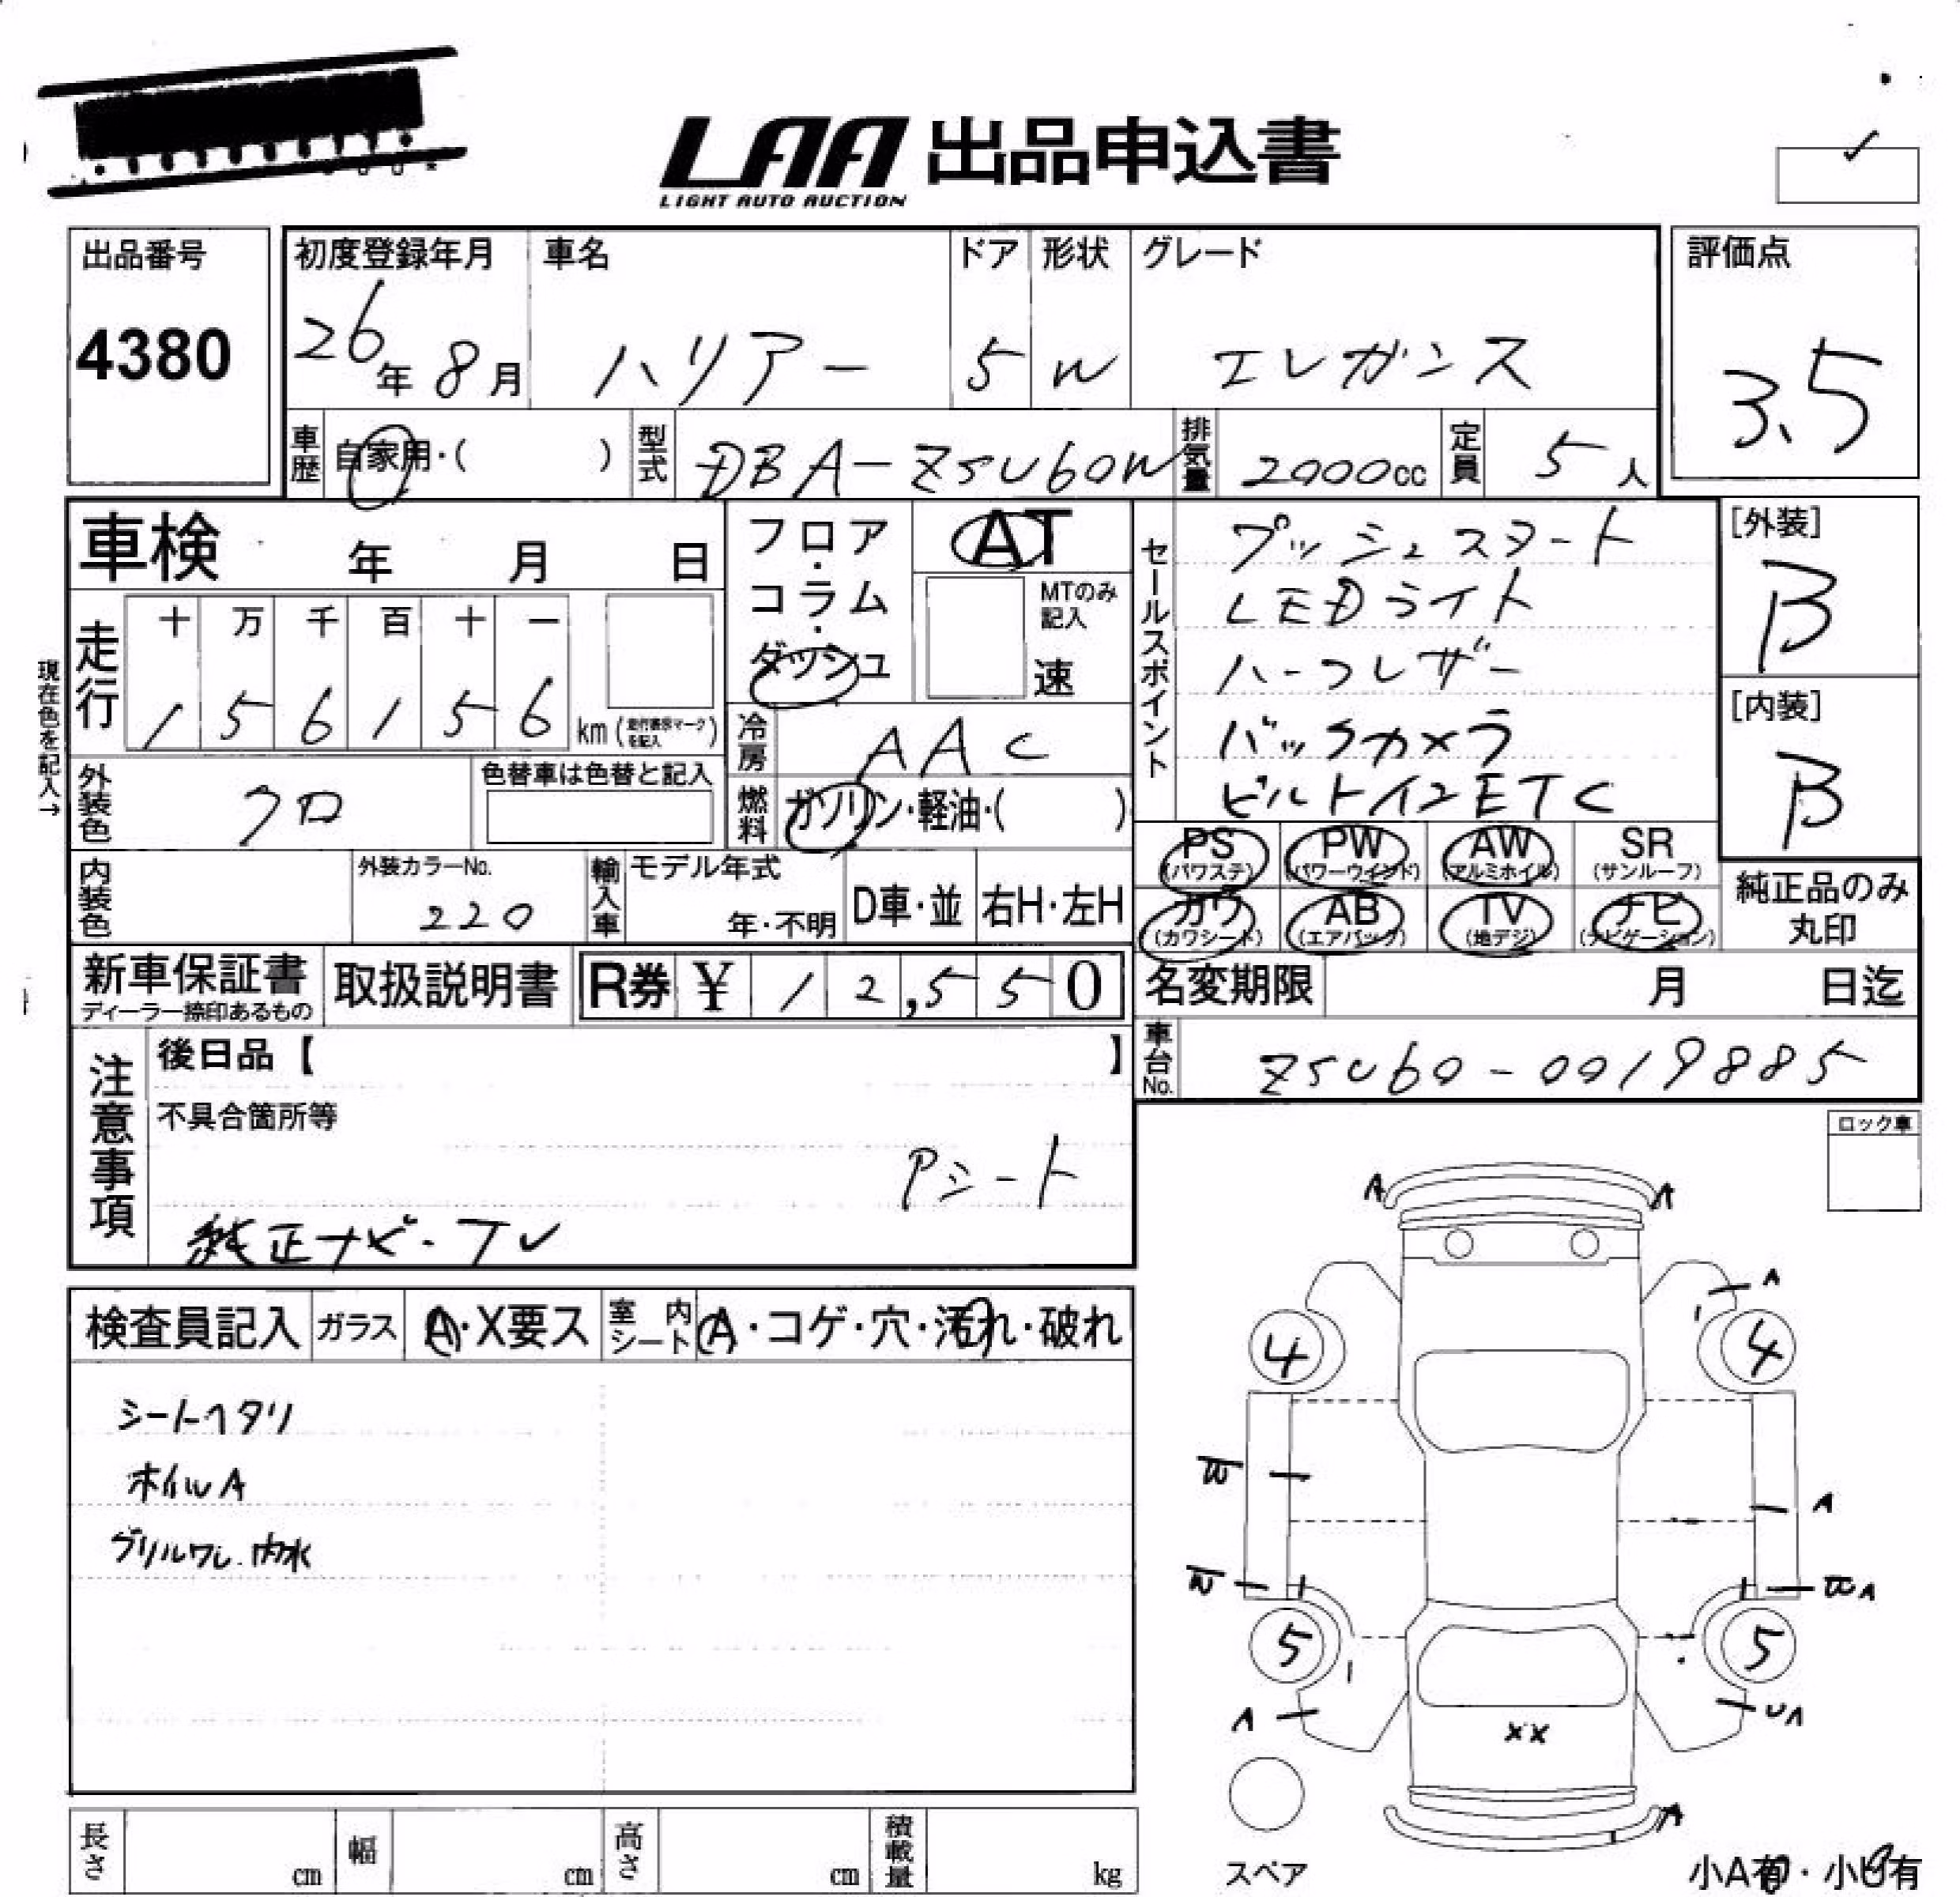 LAA 出品申込書
LIGHT AUTO AUCTION
出品番号
4380
初度登録年月
26年8月
車名
ハリアー
ドア
5
形状
W
グレード
エレガンス
評価点
3.5
車歴
自家用・( )
型式
DBA-ZSU60W
排気量
2000cc
定員
5人
車検 年 月 日
フロア・コラム・ダッシュ
AT
MTのみ記入
速
セールスポイント
プッシュスタート
LEDライト
ハーフレザー
バックカメラ
ビルトインETC
[外装]
B
[内装]
B
現在色を記入→
走行
十 万 千 百 十 一
1 5 6 1 5 6 km (走行表示マークを記入)
冷房
AAC
燃料
ガソリン・軽油・( )
外装色
クロ
色替車は色替と記入
内装色
外装カラーNo.
220
輸入車
モデル年式
年・不明
D車・並
右H・左H
PS (パワステ)
PW (パワーウインド)
AW (アルミホイル)
SR (サンルーフ)
カワ (カワシート)
AB (エアバック)
TV (地デジ)
ナビ (ナビゲーション)
純正品のみ
丸印
新車保証書
ディーラー捺印あるもの
取扱説明書
R券 ¥ 1 2,5 5 0
名変期限 月 日迄
車台No.
ZSU60-0019885
注意事項
後日品【 】
不具合箇所等
Pシート
純正ナビ・TV
ロック車
検査員記入
ガラス
A・X要ス
室内シート
A・コゲ・穴・汚れ・破れ
シートヘタリ
ホイルA
グリルワレ・内水
A A
A
4 4
A
5 5
A
UA
XX
A
スペア
小A有・小U有
長さ cm
幅 cm
高さ cm
積載量 kg